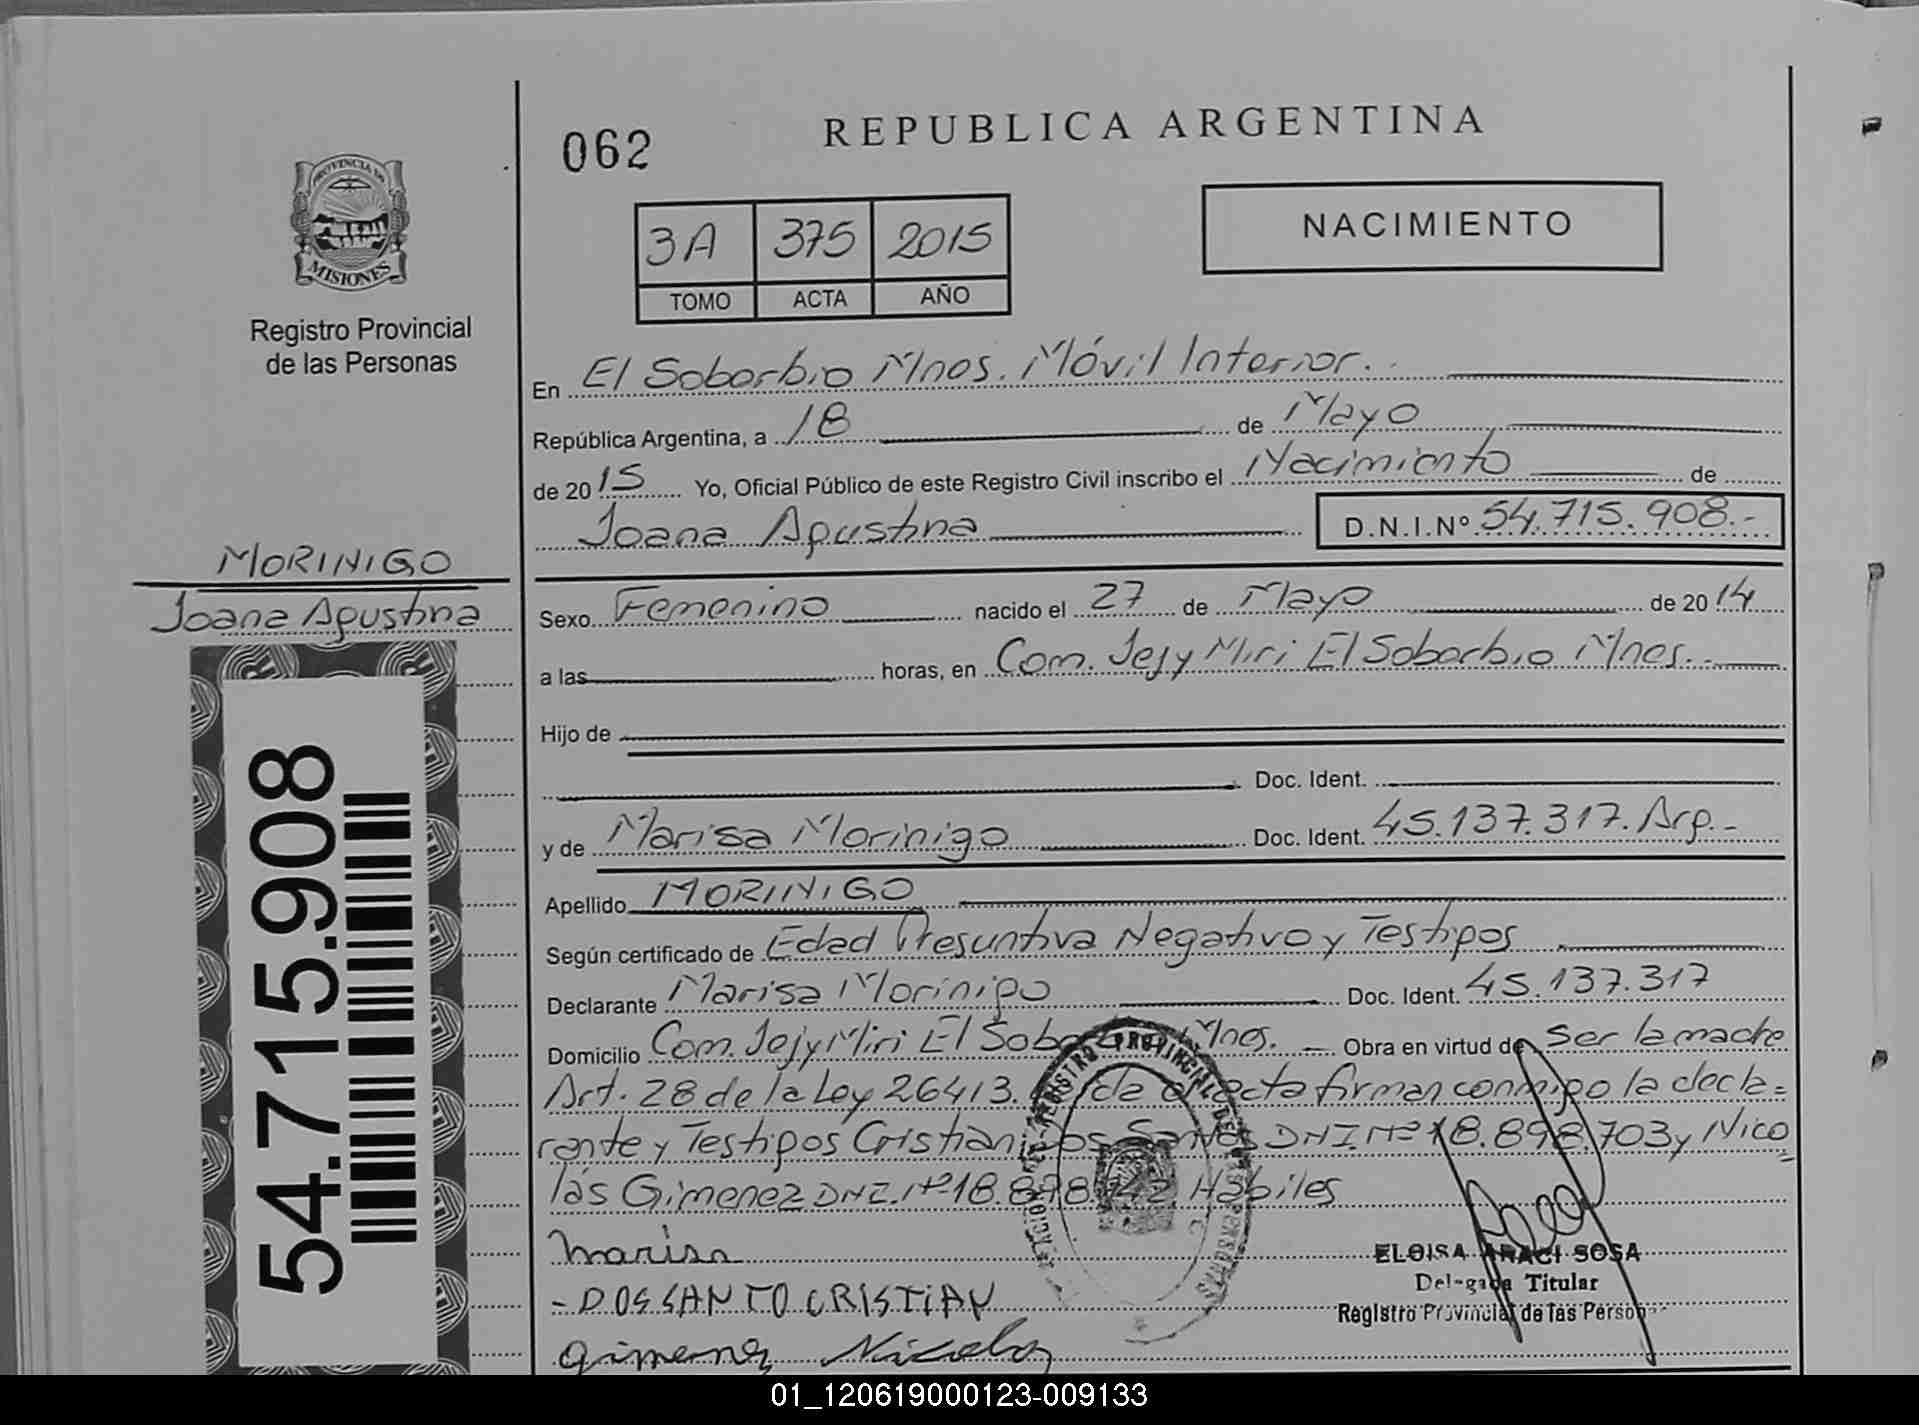 062
REPUBLICA ARGENTINA
PROVINCIA DE
MISIONES
Registro Provincial
de las Personas
3A 375 2015
TOMO ACTA AÑO
NACIMIENTO
En El Soborbio Mnes. Móvil Interior.
República Argentina, a 18 de Mayo
de 2015 Yo, Oficial Público de este Registro Civil inscribo el Nacimiento de
Joana Agustina D.N.I.Nº 54.715.908.-
MORINIGO
Joana Agustina
54.715.908
Sexo Femenino nacido el 27 de Mayo de 2014
a las horas, en Com. Jejy Miri El Soborbio Mnes.
Hijo de
Doc. Ident.
y de Marisa Morinigo Doc. Ident. 45.137.317. Arg.-
Apellido MORINIGO
Según certificado de Edad Presuntiva Negativo y Testigos
Declarante Marisa Morinigo Doc. Ident. 45.137.317
Domicilio Com. Jejy Miri El Mnes. Obra en virtud de Ser la madre
Art. 28 de la Ley 26413. acta firman conmigo la decla=
rante y Testigos Cristian Santos DNI Nº 18.898.703 y Nico
lás Gimenez DNI. Nº 18.898. Hábiles
Marisa
- DOSSANTO CRISTIAN
Gimenez Nicolas
REGISTRO PROVINCIAL DE LAS PERSONAS
ELOISA ARACI SOSA
Delegada Titular
Registro Provincial de las Personas
01_120619000123-009133